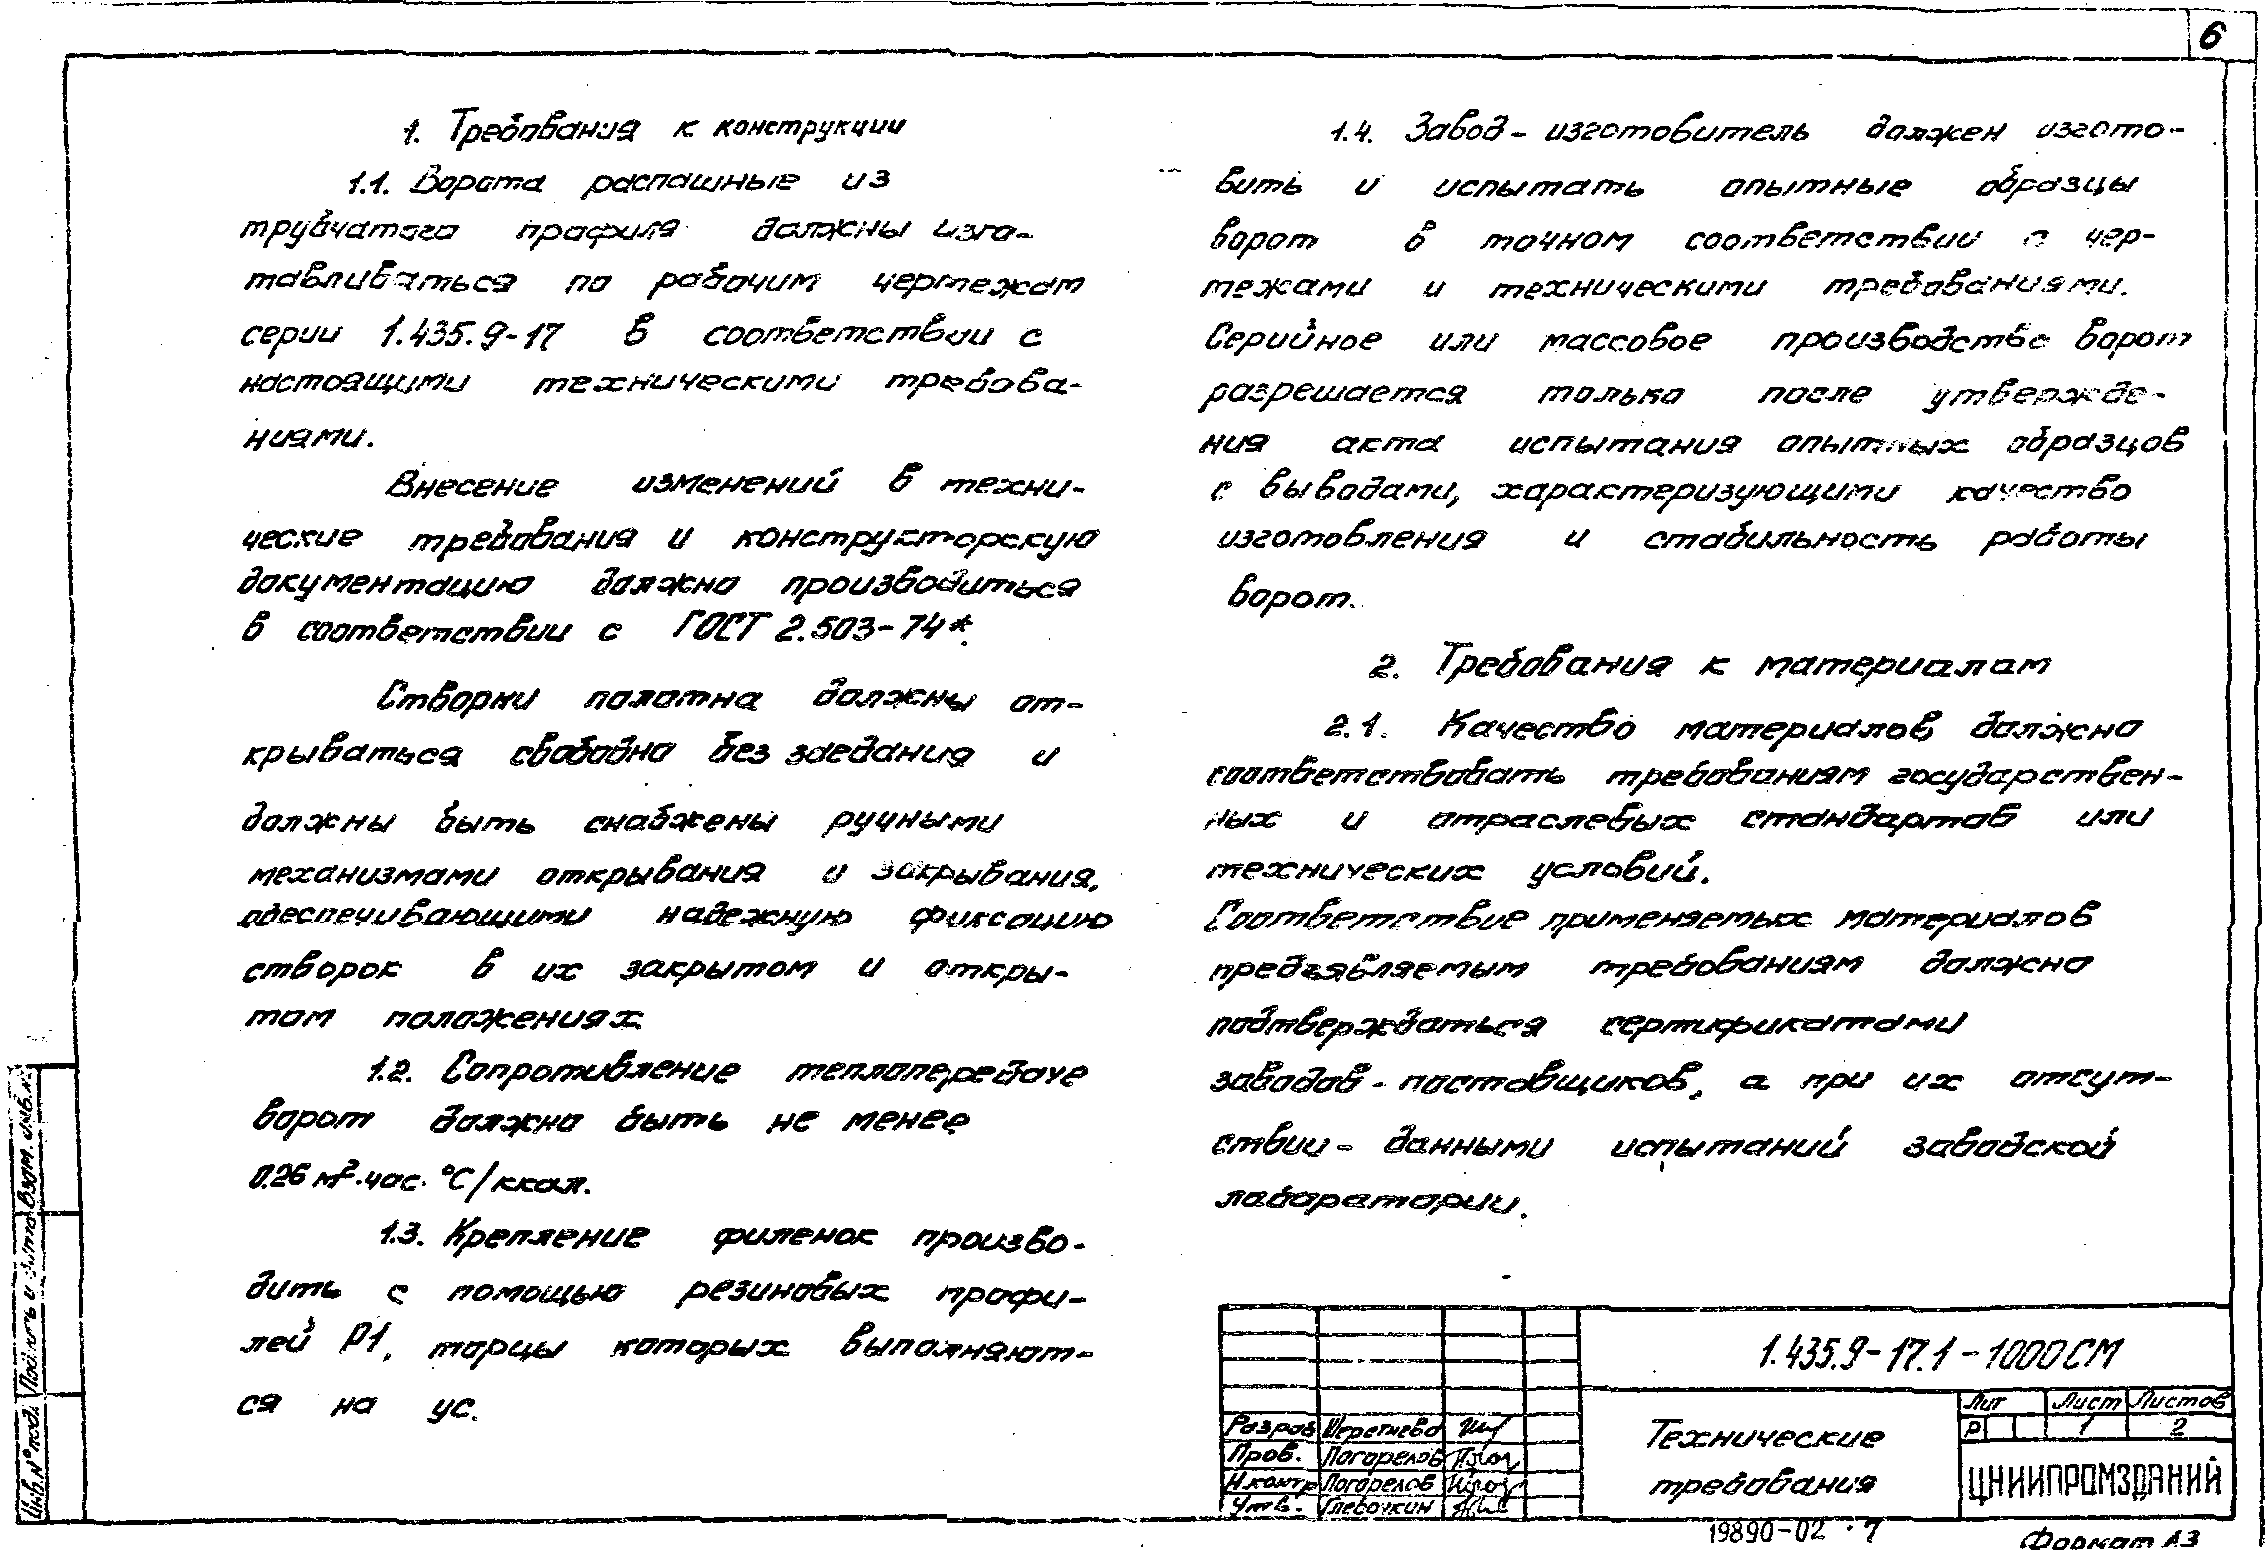 6
1. Требования к конструкции
1.1. Ворота распашные из
трубчатого профиля должны изго-
тавливаться по рабочим чертежам
серии 1.435.9-17 в соответствии с
настоящими техническими требова-
ниями.
Внесение изменений в техни-
ческие требования и конструкторскую
документацию должно производиться
в соответствии с ГОСТ 2.503-74*.
Створки полотна должны от-
крываться свободно без заедания и
должны быть снабжены ручными
механизмами открывания и закрывания,
обеспечивающими надежную фиксацию
створок в их закрытом и откры-
том положениях
1.2. Сопротивление теплопередаче
ворот должно быть не менее
0.26 м²·час·°С/ккал.
1.3. Крепление филенок произво-
дить с помощью резиновых профи-
лей Р1, торцы которых выполняют-
ся на ус.
1.4. Завод-изготовитель должен изгото-
вить и испытать опытные образцы
ворот в точном соответствии с чер-
тежами и техническими требованиями.
Серийное или массовое производство ворот
разрешается только после утвержде-
ния акта испытания опытных образцов
с выводами, характеризующими качество
изготовления и стабильность работы
ворот.
2. Требования к материалам
2.1. Качество материалов должно
соответствовать требованиям государствен-
ных и отраслевых стандартов или
технических условий.
Соответствие применяемых материалов
предъявляемым требованиям должно
подтверждаться сертификатами
заводов-поставщиков, а при их отсут-
ствии - данными испытаний заводской
лаборатории.
1.435.9-17.1-1000СМ
Технические
требования
Лит Лист Листов
Р 1 2
ЦНИИПРОМЗДАНИЙ
Разраб
Пров. Погорелов
Н.контр Погорелов
Утв.
Инв.№ подл. Подпись и дата Взам. инв.№
19890-02 7
Формат А3